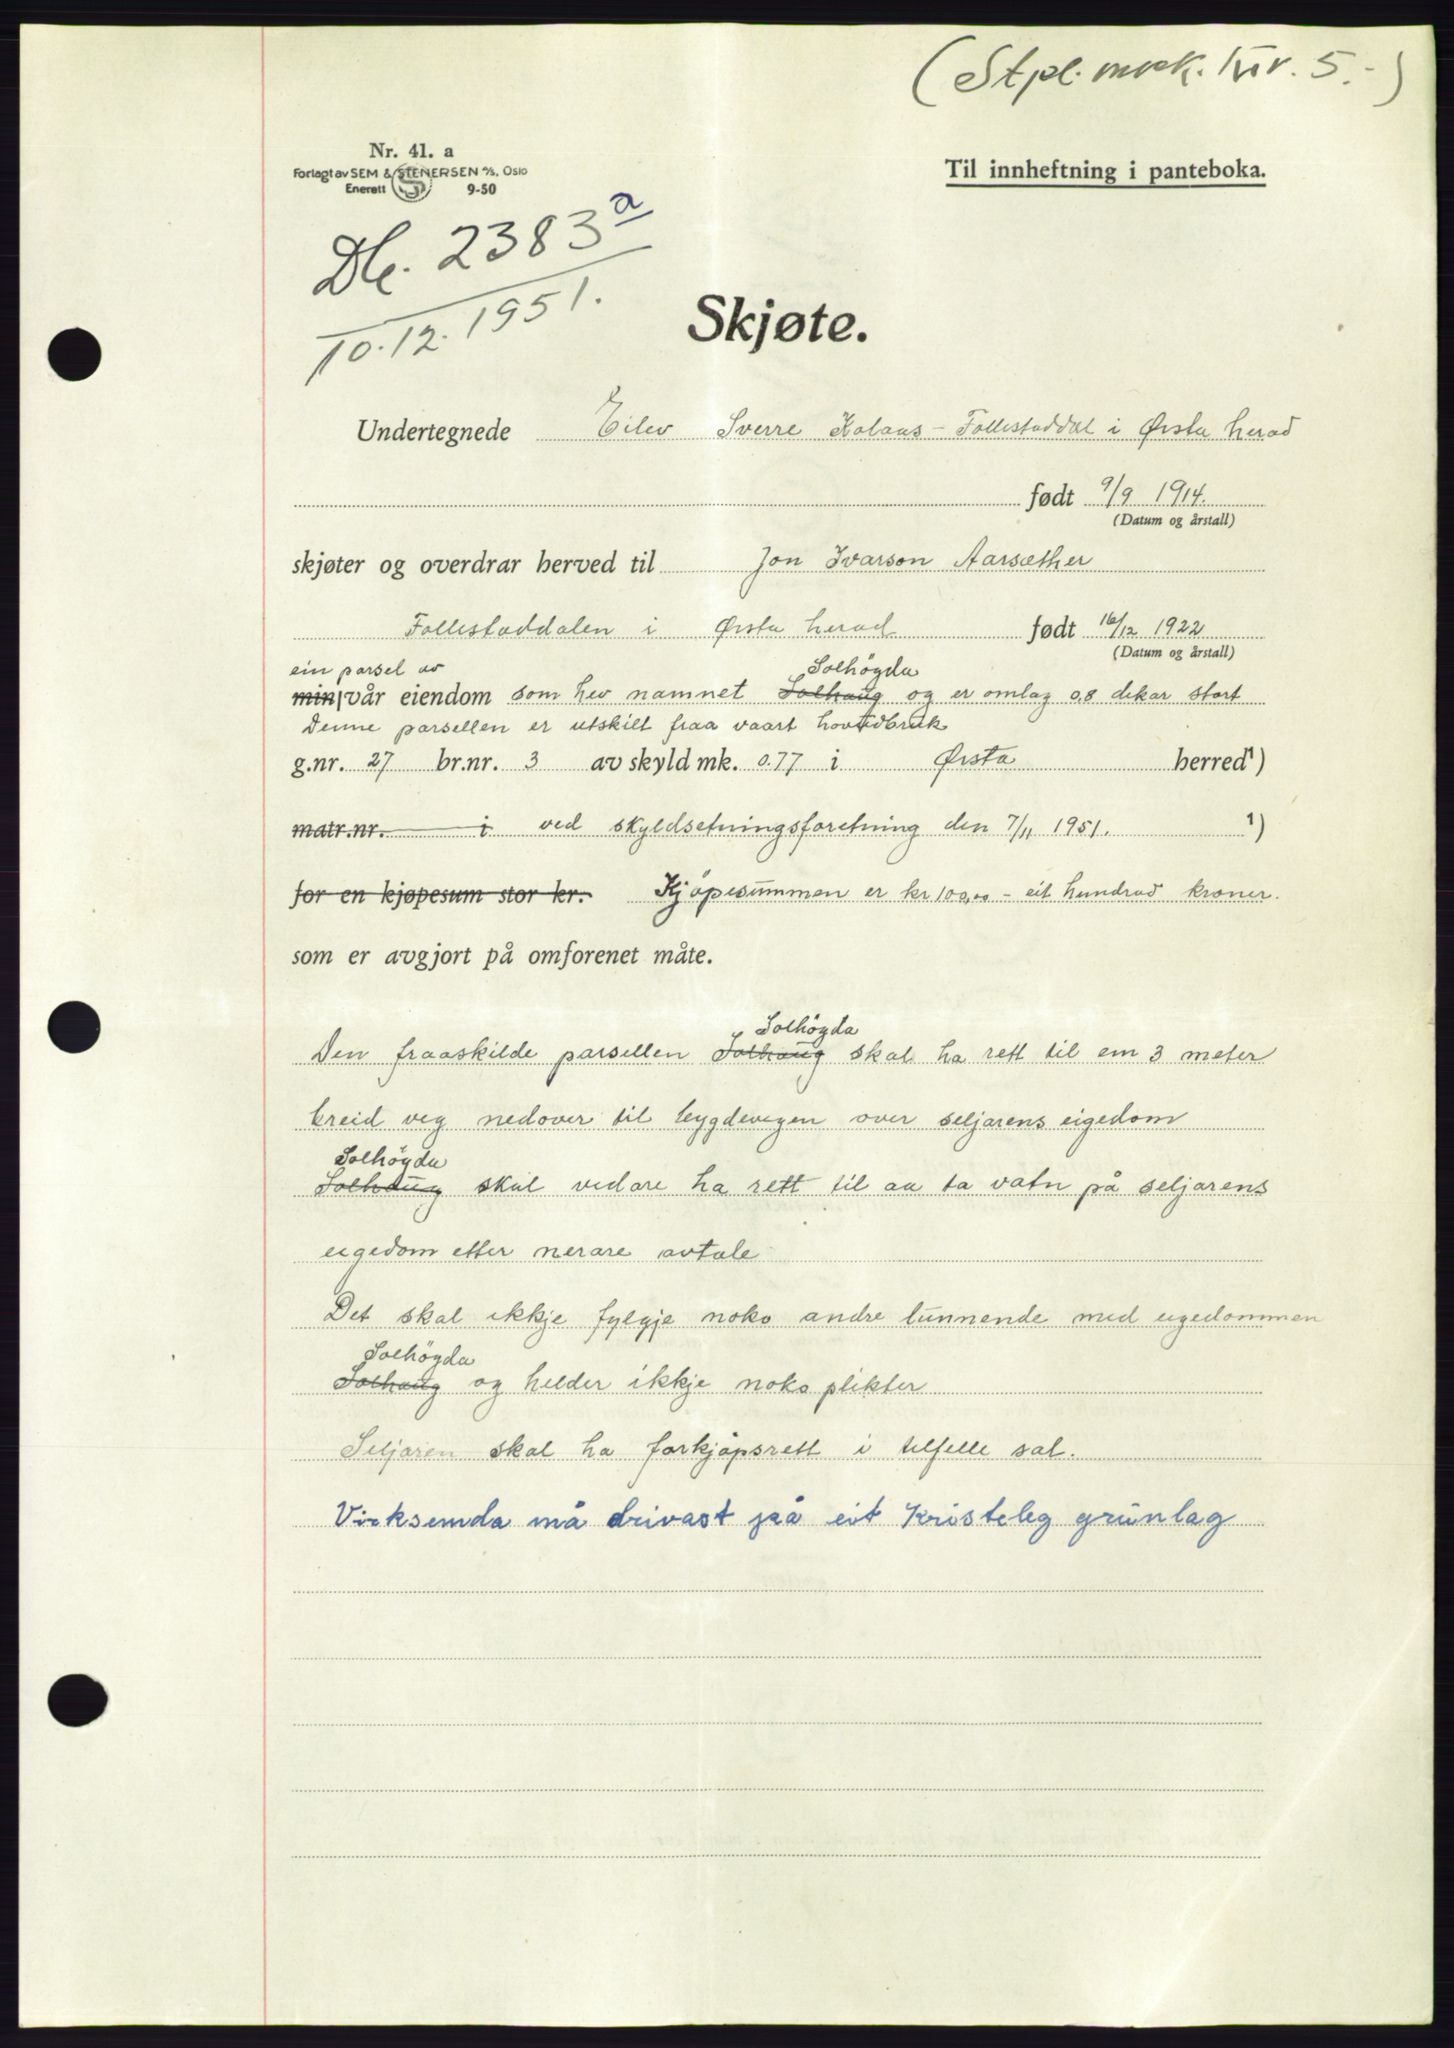 (Stpl. mrk. kr. 5.-)
Nr. 41. a
Forlagt av SEM & STENERSEN A/S, Oslo
Enerett S 9-50
Til innheftning i panteboka.
Db. 2383 a
10.12.1951.
Skjøte.
Undertegnede Eilev Sverre Kolaas - Follestaddal i Ørsta herad
født 9/9 1914.
(Datum og årstall)
skjøter og overdrar herved til Jon Ivarson Aarsæther
Follestaddalen i Ørsta herad født 16/12 1922
(Datum og årstall)
ein parsel av Solhögda
min/vår eiendom som hev namnet Solhaug og er omlag 0,8 dekar stort
Denne parsellen er utskilt fraa vaart hovudbruk
g.nr. 27 br.nr. 3 av skyld mk. 0.77 i Ørsta herred¹)
matr.nr. i ved skyldsetningsforetning den 7/11 1951. ¹)
for en kjøpesum stor kr. Kjöpesummen er kr 100,00 - eit hundrad kroner.
som er avgjort på omforenet måte.
Solhögda
Den fraaskilde parsellen Solhaug skal ha rett til em 3 meter
breid veg nedover til bygdevegen over seljarens eigedom
Solhögda
Solhaug skal vidare ha rett til aa ta vatn på seljarens
eigedom etter nerare avtale
Det skal ikkje fylgje noko andre lunnende med eigedommen
Solhögda
Solhaug og helder ikkje noko plikter
Seljaren skal ha forkjöpsrett i tilfelle sal.
Virksemda må drivast på eit kristeleg grunlag